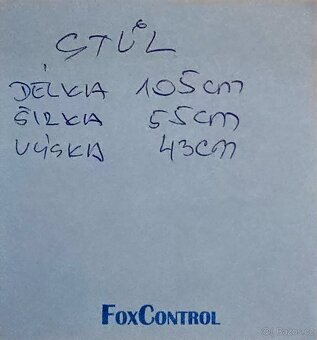 STŮL
DÉLKA 105cm
ŠÍRKA 55cm
VÝŠKA 43cm
FOXCONTROL